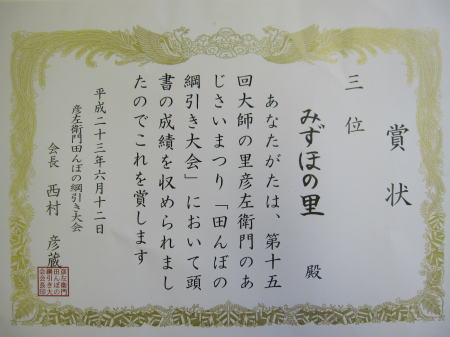 賞状
三位
みずほの里 殿
あなたがたは、第十五
回大師の里彦左衛門のあ
じさいまつり「田んぼの
綱引き大会」において頭
書の成績を収められまし
たのでこれを賞します
平成二十三年六月十二日
彦左衛門田んぼの綱引き大会
会長 西村 彦蔵
彦左衛門
田んぼの
綱引き大
会会長印